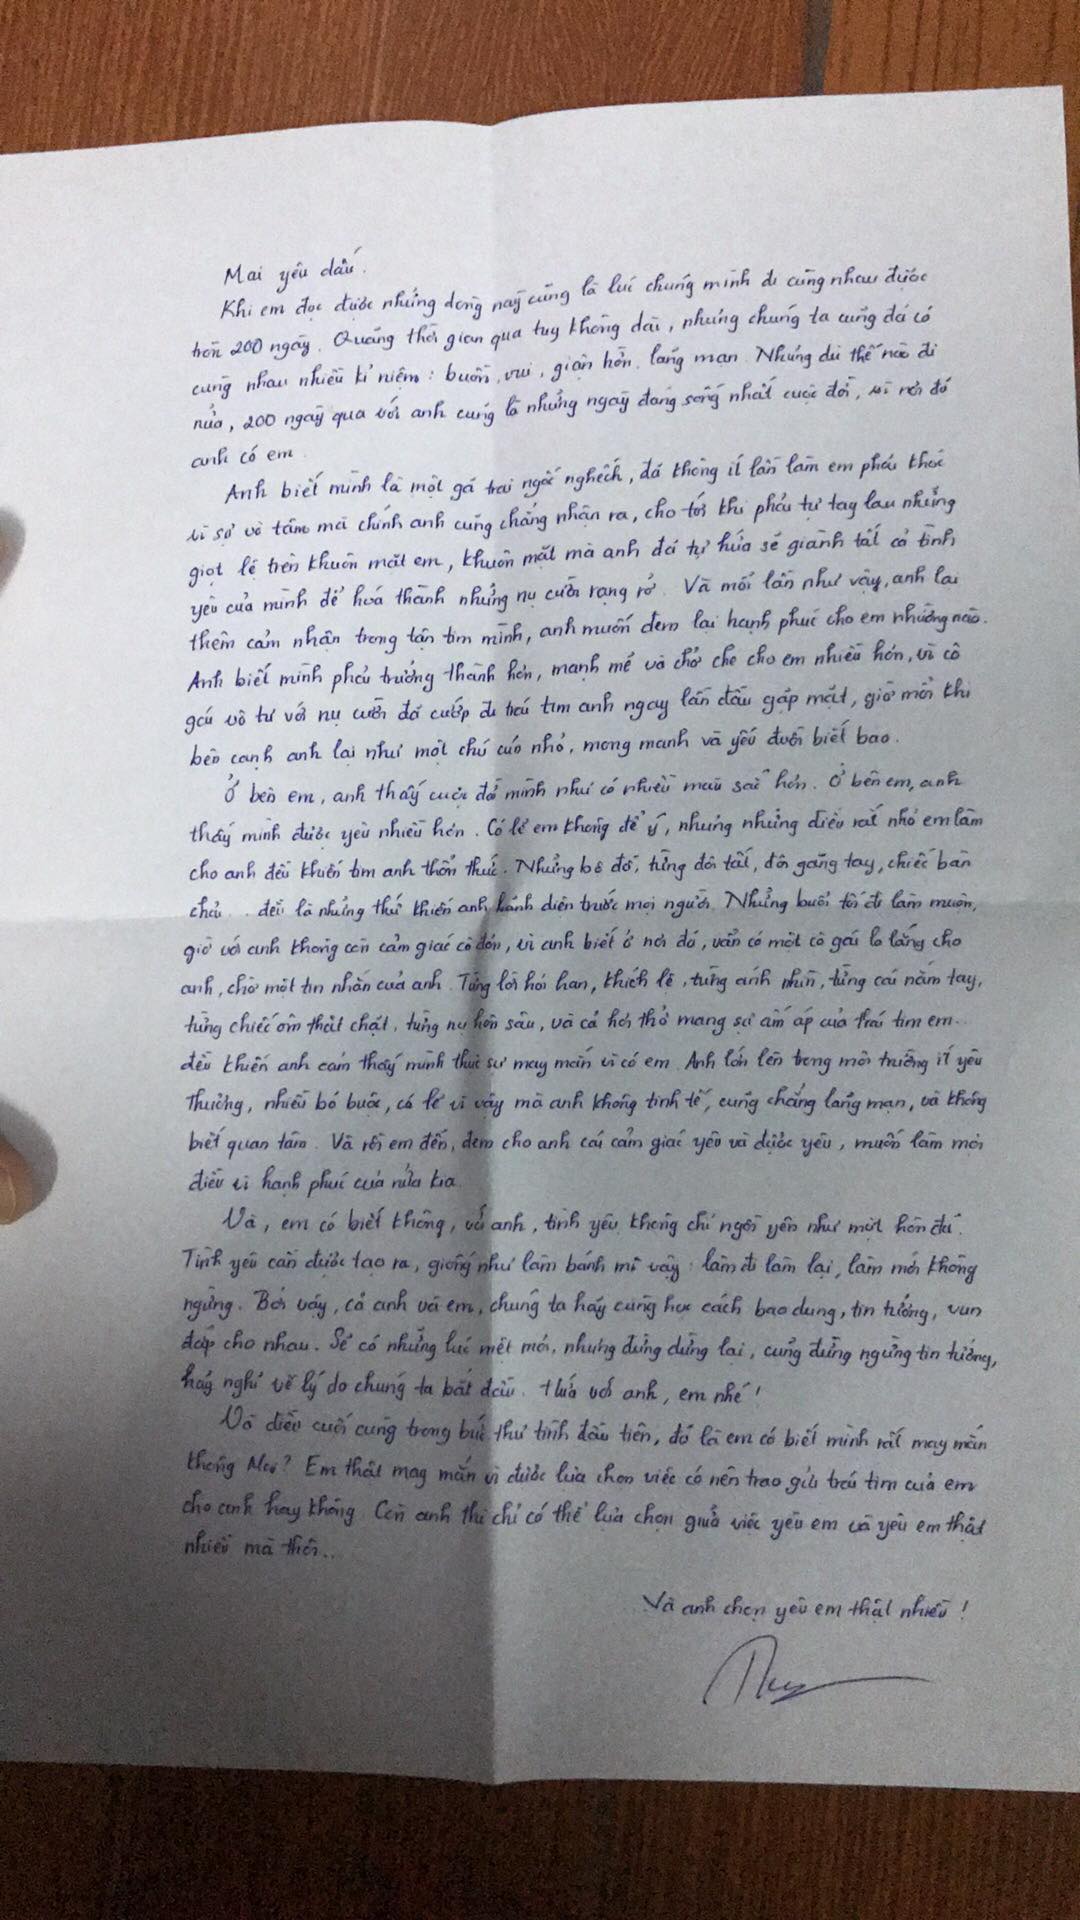 Mai yêu dấu.
Khi em đọc được những dòng này cũng là lúc chúng mình đi cùng nhau được
tròn 200 ngày. Quãng thời gian qua tuy không dài, nhưng chúng ta cũng đã có
cùng nhau nhiều kỉ niệm: buồn, vui, giận hờn, lãng mạn. Nhưng dù thế nào đi
nữa, 200 ngày qua với anh cũng là những ngày đáng sống nhất cuộc đời, vì nơi đó
anh có em.
Anh biết mình là một gã trai ngốc nghếch, đã không ít lần làm em phải khóc
vì sự vô tâm mà chính anh cũng chẳng nhận ra, cho tới khi phải tự tay lau những
giọt lệ trên khuôn mặt em, khuôn mặt mà anh đã tự hứa sẽ giành tất cả tình
yêu của mình để hoá thành những nụ cười rạng rỡ. Và mỗi lần như vậy, anh lại
thêm cảm nhận trong tận tim mình, anh muốn đem lại hạnh phúc cho em nhường nào.
Anh biết mình phải trưởng thành hơn, mạnh mẽ và chở che cho em nhiều hơn, vì cô
gái vô tư với nụ cười đã cướp đi trái tim anh ngay lần đầu gặp mặt, giờ mỗi khi
bên cạnh anh lại như một chú cún nhỏ, mong manh và yếu đuối biết bao.
Ở bên em, anh thấy cuộc đời mình như có nhiều màu sắc hơn. Ở bên em, anh
thấy mình được yêu nhiều hơn. Có lẽ em không để ý, nhưng những điều rất nhỏ em làm
cho anh đều khiến tim anh thổn thức. Những bộ đồ, từng đôi tất, đôi găng tay, chiếc bàn
chải... đều là những thứ khiến anh hãnh diện trước mọi người. Những buổi tối đi làm muộn,
giờ với anh không còn cảm giác cô đơn, vì anh biết ở nơi đó, vẫn có một cô gái lo lắng cho
anh, chờ một tin nhắn của anh. Từng lời hỏi han, khích lệ, từng ánh nhìn, từng cái nắm tay,
từng chiếc ôm thật chặt, từng nụ hôn sâu, và cả hơi thở mang sự ấm áp của trái tim em...
đều khiến anh cảm thấy mình thực sự may mắn vì có em. Anh lớn lên trong môi trường ít yêu
thương, nhiều bó buộc, có lẽ vì vậy mà anh không tinh tế, cũng chẳng lãng mạn, và không
biết quan tâm. Và rồi em đến, đem cho anh cái cảm giác yêu và được yêu, muốn làm mọi
điều vì hạnh phúc của nửa kia.
Và, em có biết không, với anh, tình yêu không chỉ ngồi yên như một hòn đá.
Tình yêu cần được tạo ra, giống như làm bánh mì vậy: làm đi làm lại, làm mới không
ngừng. Bởi vậy, cả anh và em, chúng ta hãy cùng học cách bao dung, tin tưởng, vun
đắp cho nhau. Sẽ có những lúc mệt mỏi, nhưng đừng dừng lại, cũng đừng ngừng tin tưởng,
hãy nghĩ về lý do chúng ta bắt đầu. Hứa với anh, em nhé!
Và điều cuối cùng trong bức thư tình đầu tiên, đó là em có biết mình rất may mắn
không Mai? Em thật may mắn vì được lựa chọn việc có nên trao gửi trái tim của em
cho anh hay không. Còn anh thì chỉ có thể lựa chọn giữa việc yêu em và yêu em thật
nhiều mà thôi...
Và anh chọn yêu em thật nhiều!